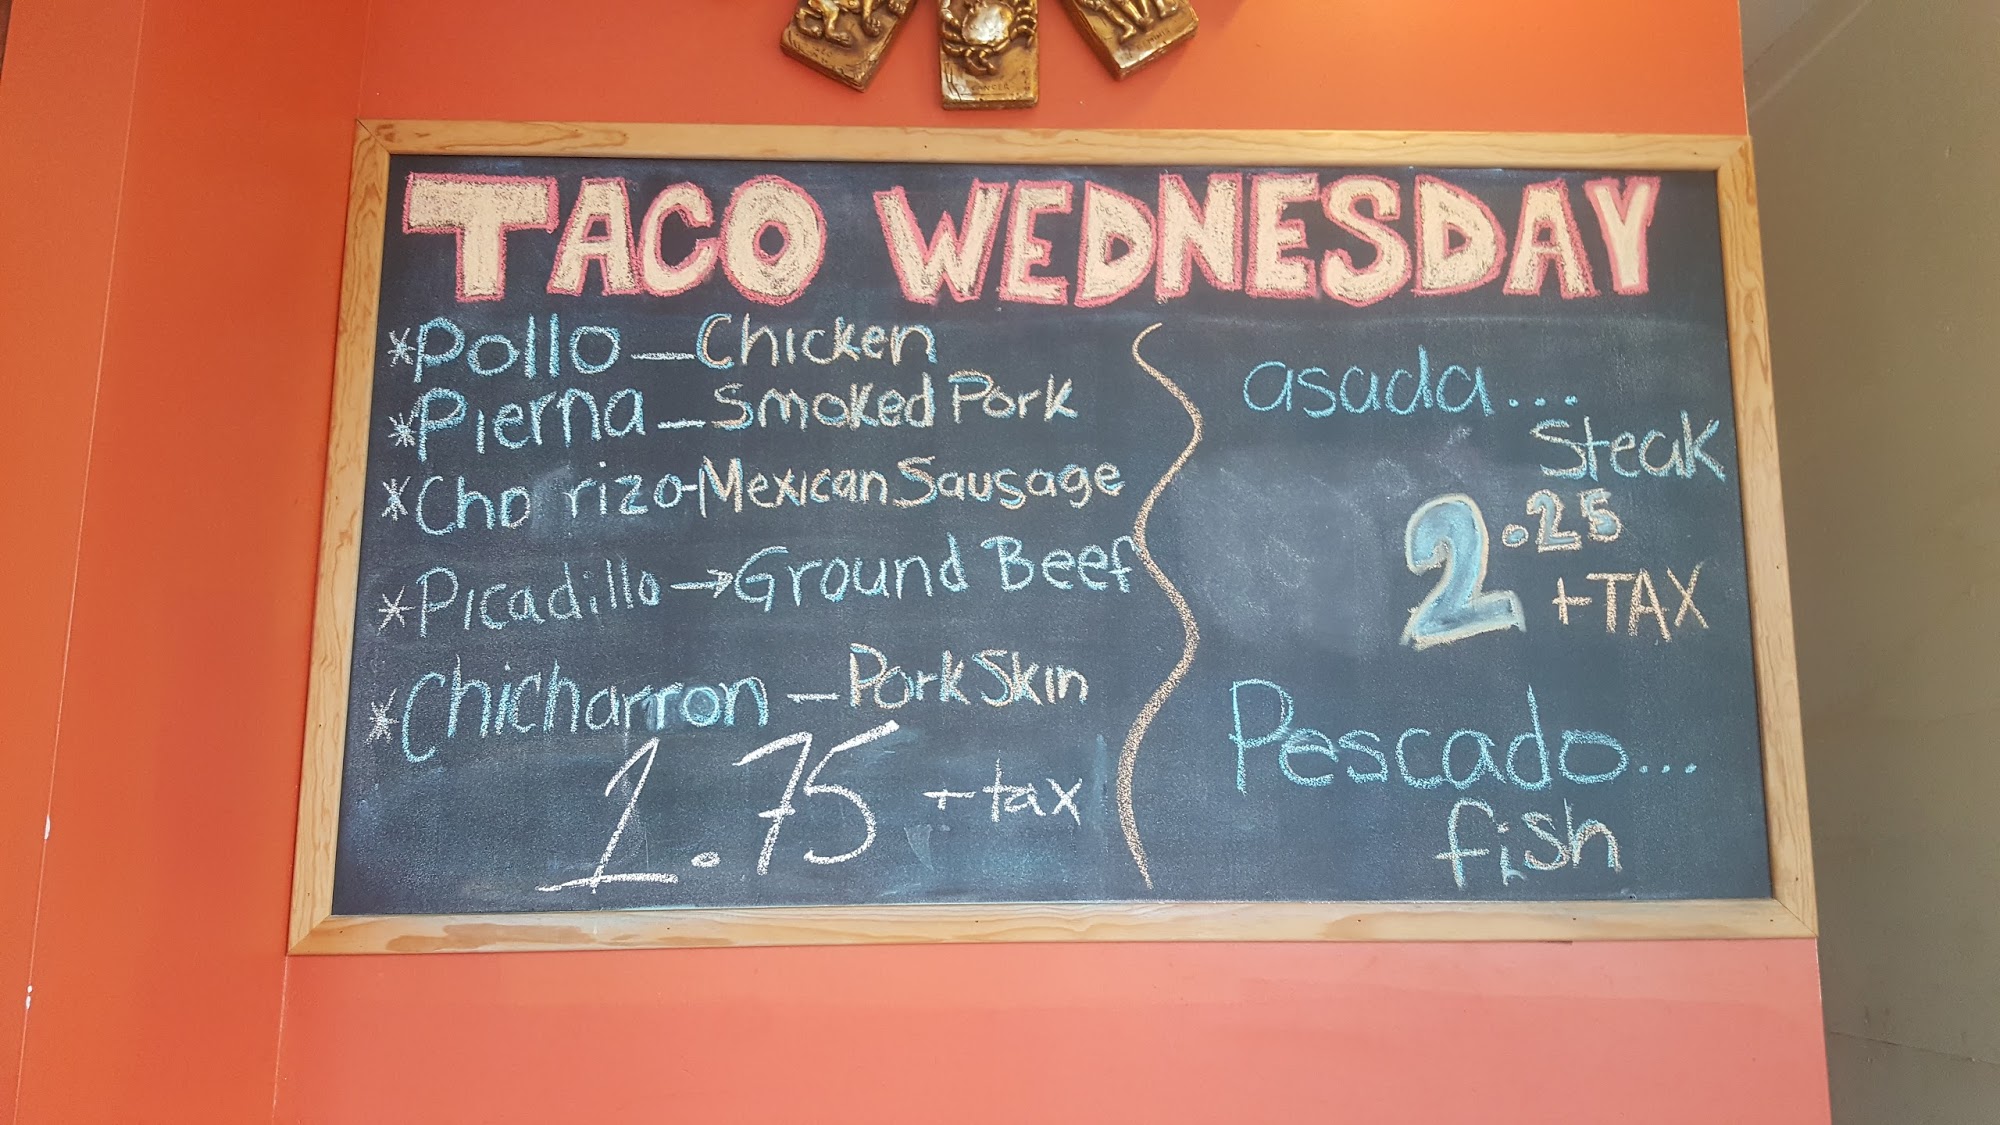 LEO
CANCER
TACO WEDNESDAY
*Pollo—Chicken
*Pierna—Smoked Pork
*Cho rizo-Mexican Sausage
*Picadillo→Ground Beef
*Chicharron—Pork Skin
1.75 +tax
asada...
Steak
2.25
+TAX
Pescado...
fish